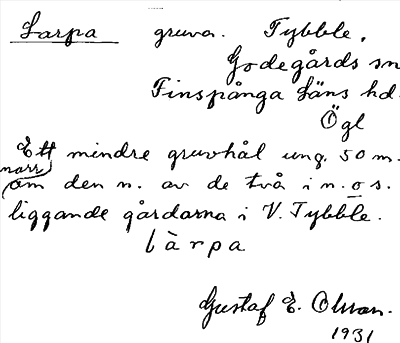 Larpa gruva. Tybble,
Godegårds sn
Finspånga läns hd.
Ögl
Ett mindre gruvhål ung. 50 m.
norr
om den n. av de två i n. o s.
liggande gårdarna i V. Tybble.
làrpa
Gustaf E. Olsson.
1931